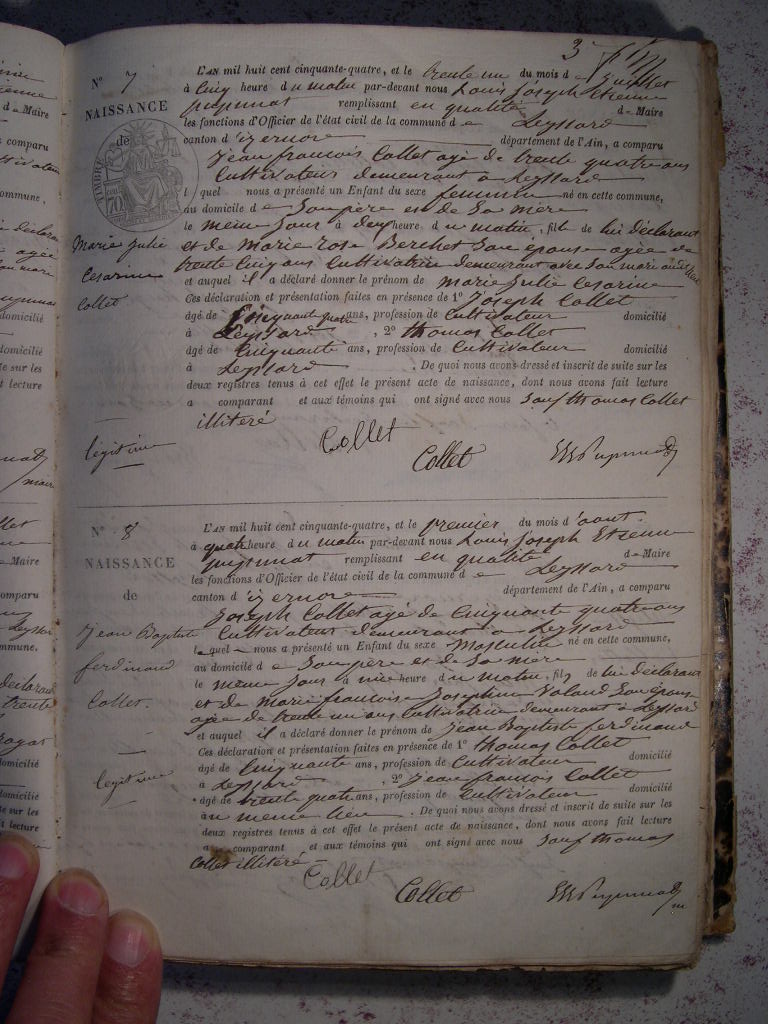 3
N° 7
NAISSANCE
de
Marie Julie
Cesarine
Collet
légitime
L'AN mil huit cent cinquante-quatre, et le trente un du mois de Juillet
à Cinq heure du matin par-devant nous Louis Joseph Etienne
remplissant en qualité de Maire
les fonctions d'Officier de l'état civil de la commune de Leyssard
canton d'izernore département de l'Ain, a comparu
Jean francois Collet agé de trente quatre ans
Cultivateur demeurant à Leyssard
lequel nous a présenté un Enfant du sexe feminin né en cette commune,
au domicile de Son père et de Sa mère
le même jour à deux heure du matin, fille de lui déclarant
et de Marie rose Berchet Son épouse agée de
trente Cinq ans Cultivatrice demeurant avec Son mari audit lieu
et auquel il a déclaré donner le prénom de marie Julie Cesarine
Ces déclaration et présentation faites en présence de 1° Joseph Collet
âgé de Cinquante quatre ans, profession de Cultivateur domicilié
à Leyssard , 2° thomas Collet
âgé de Cinquante ans, profession de Cultivateur domicilié
à Leyssard . De quoi nous avons dressé et inscrit de suite sur les
deux registres tenus à cet effet le présent acte de naissance, dont nous avons fait lecture
a comparant et aux témoins qui ont signé avec nous Sauf thomas Collet
illitéré
Collet
Collet
N° 8
NAISSANCE
de
Jean Baptiste
ferdinand
Collet.
légitime
L'AN mil huit cent cinquante-quatre, et le premier du mois d'aout.
à quatre heure du matin par-devant nous Louis Joseph Etienne
remplissant en qualité de Maire
les fonctions d'Officier de l'état civil de la commune de Leyssard
canton d'izernore département de l'Ain, a comparu
Joseph Collet agé de Cinquante quatre ans
Cultivateur demeurant à Leyssard
lequel nous a présenté un Enfant du sexe Masculin né en cette commune,
au domicile de Son père et de Sa mère
le même jour à une heure du matin, fils de lui déclarant
et de marie francoise Josephine Voland Son épouse
agée de trente un ans Cultivatrice demeurant à Leyssard
et auquel il a déclaré donner le prénom de Jean Baptiste ferdinand
Ces déclaration et présentation faites en présence de 1° thomas Collet
âgé de Cinquante ans, profession de Cultivateur domicilié
à Leyssard , 2° Jean francois Collet
âgé de trente quatre ans, profession de Cultivateur domicilié
au même lieu . De quoi nous avons dressé et inscrit de suite sur les
deux registres tenus à cet effet le présent acte de naissance, dont nous avons fait lecture
au comparant et aux témoins qui ont signé avec nous Sauf thomas
Collet illitéré
Collet
Collet